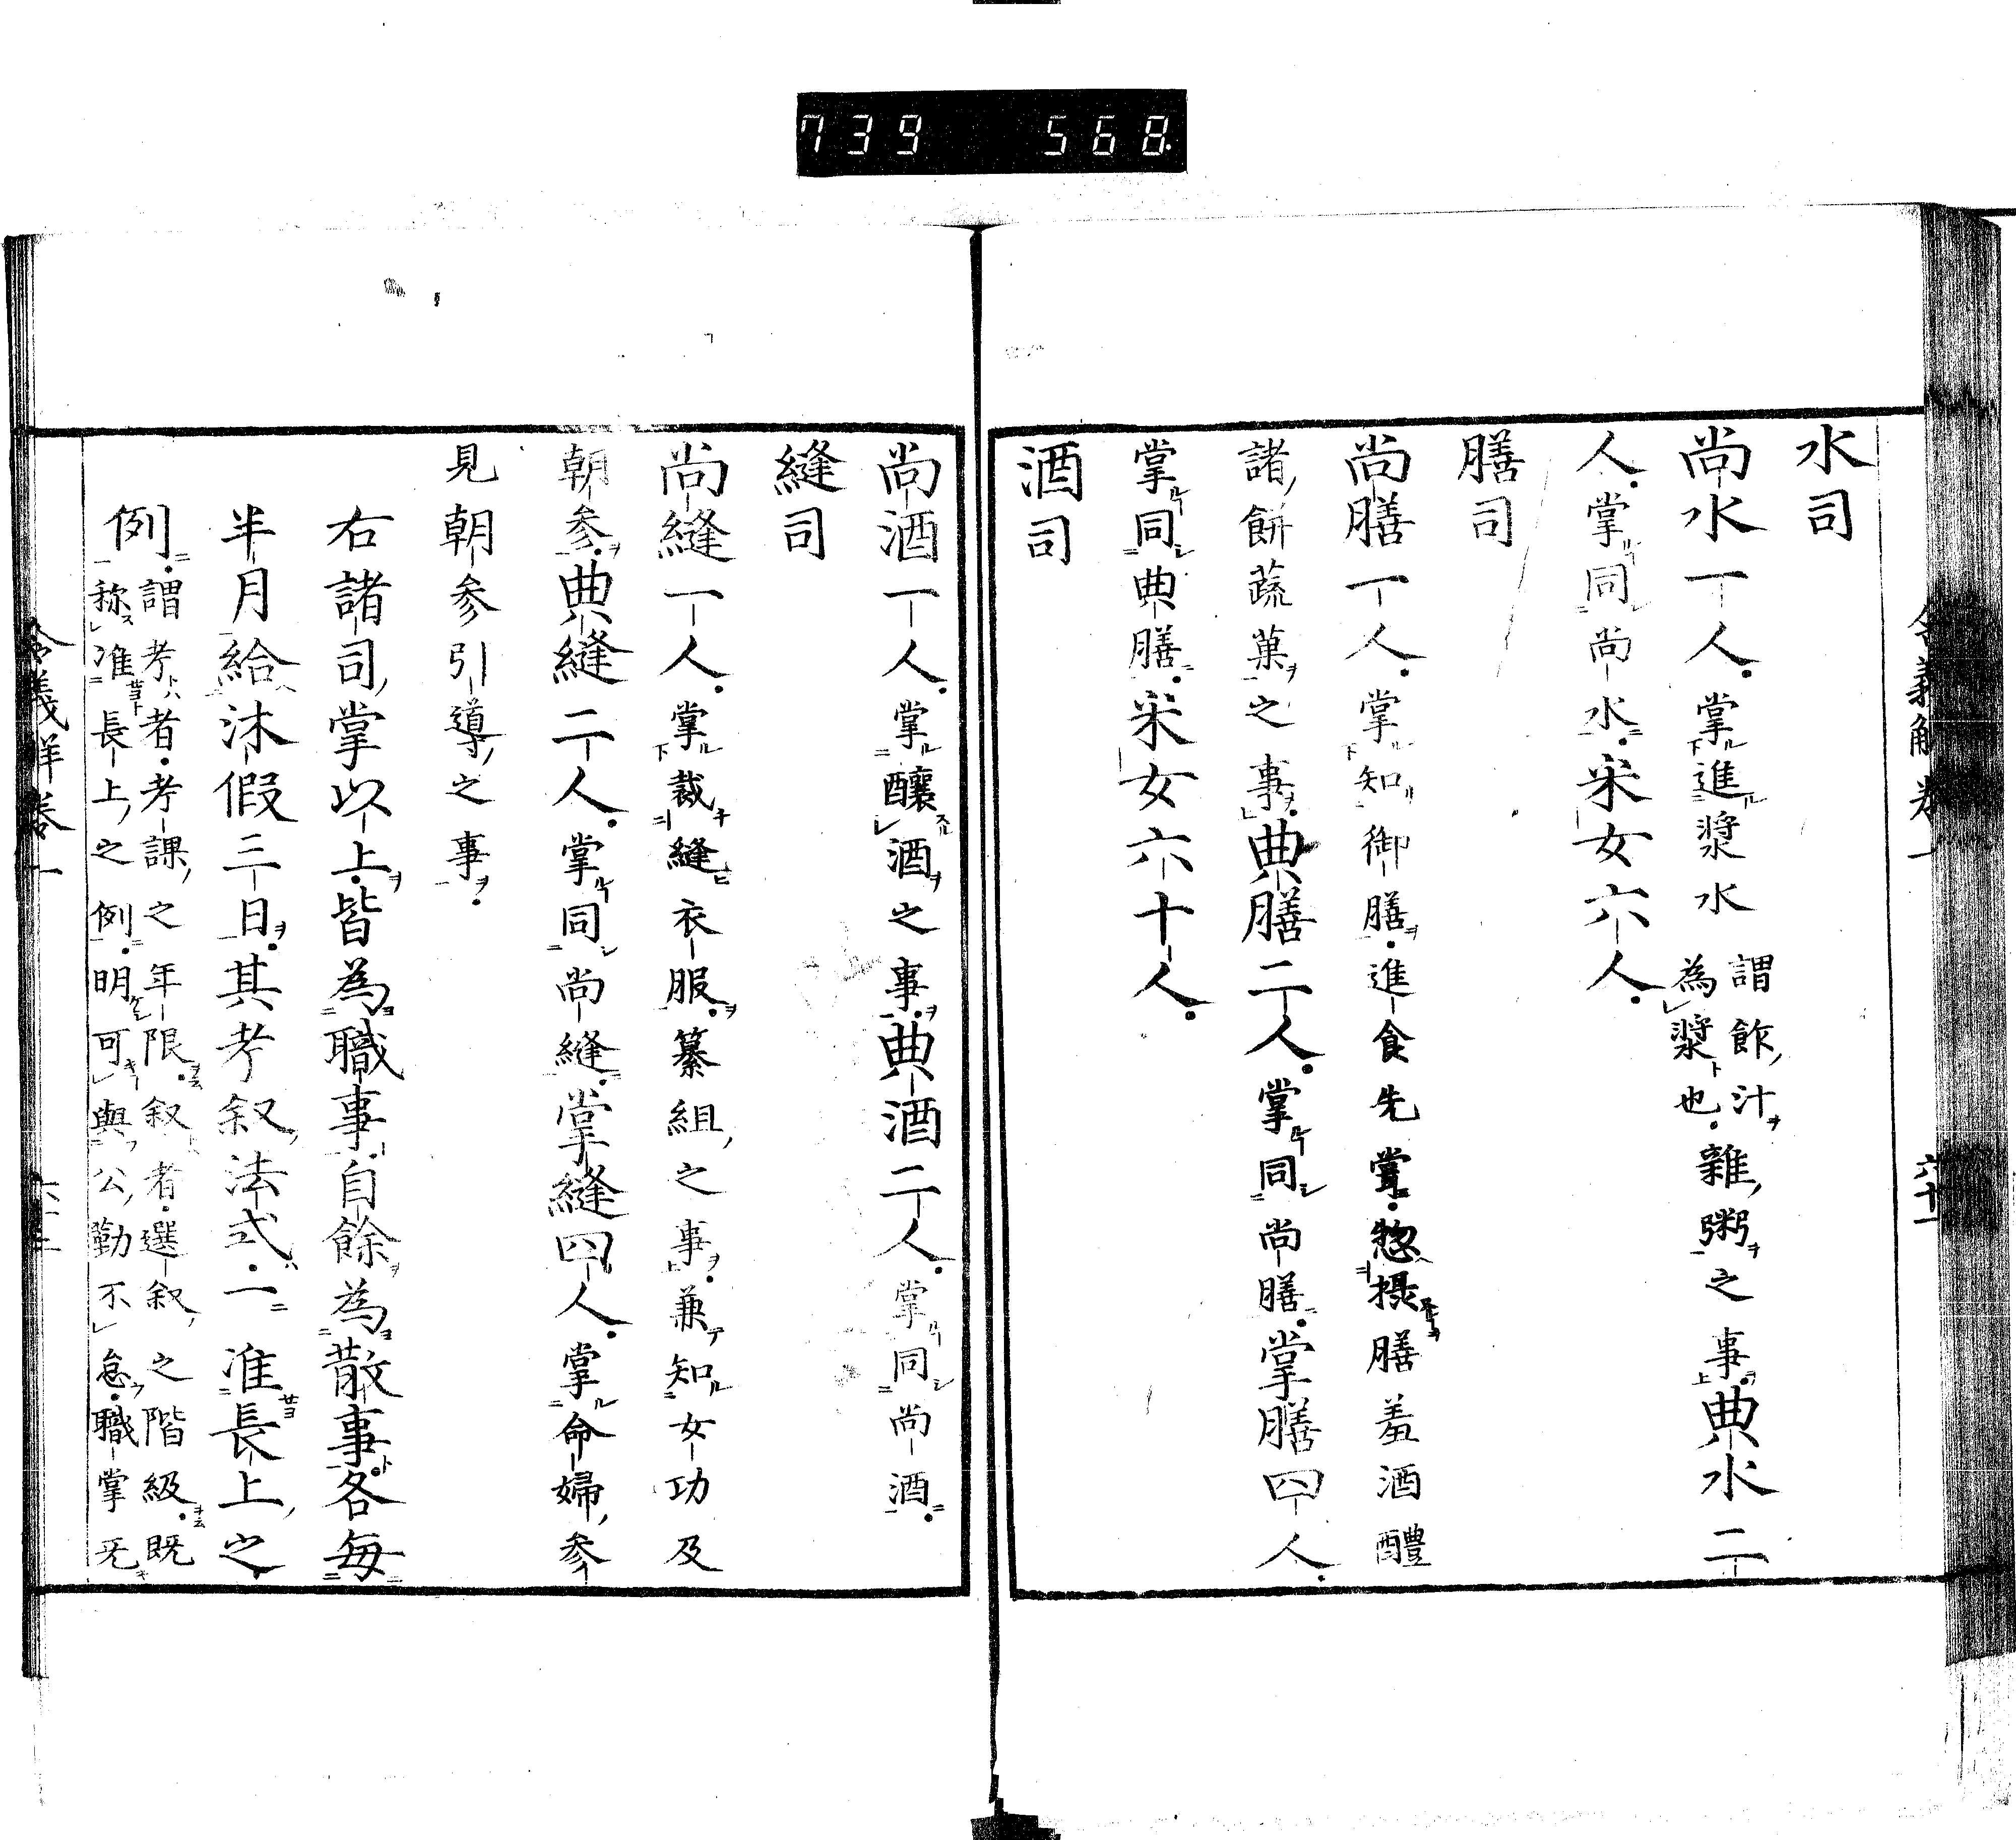 739 568
水司
尚水一人。掌進漿水謂飵汁為漿也。雜粥之事。典水二
人。掌同尚水。采女六人。
膳司
尚膳一人。掌知御膳。進食先嘗。惣摂膳羞酒醴
諸餅蔬菓之事。典膳二人。掌同尚膳。掌膳四人。
掌同典膳。采女六十人。
酒司
尚酒一人。掌釀酒之事。典酒二人。掌同尚酒。
縫司
尚縫一人。掌裁縫衣服。纂組之事。兼知女功及
朝参。典縫二人。掌同尚縫。掌縫四人。掌命婦参
見朝参引導之事。
右諸司掌以上。皆為職事。自餘為散事。各毎
半月給沐假三日。其考叙法式。一准長上之
例。謂考者。考課之年限。叙者。選叙之階級。既
称准長上之例。明可與公勤不怠。職掌无